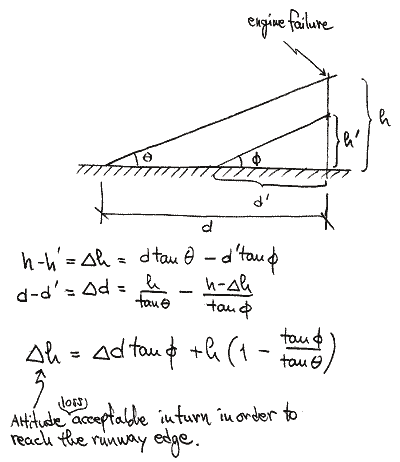 engine failure
h
h'
θ
φ
d'
d
h-h' = Δh = d tan θ - d' tan φ
d-d' = Δd = h/tanθ - h-Δh/tanφ
Δh = Δd tan φ + h (1 - tanφ/tanθ)
Altitude loss acceptable in turn in order to
reach the runway edge.